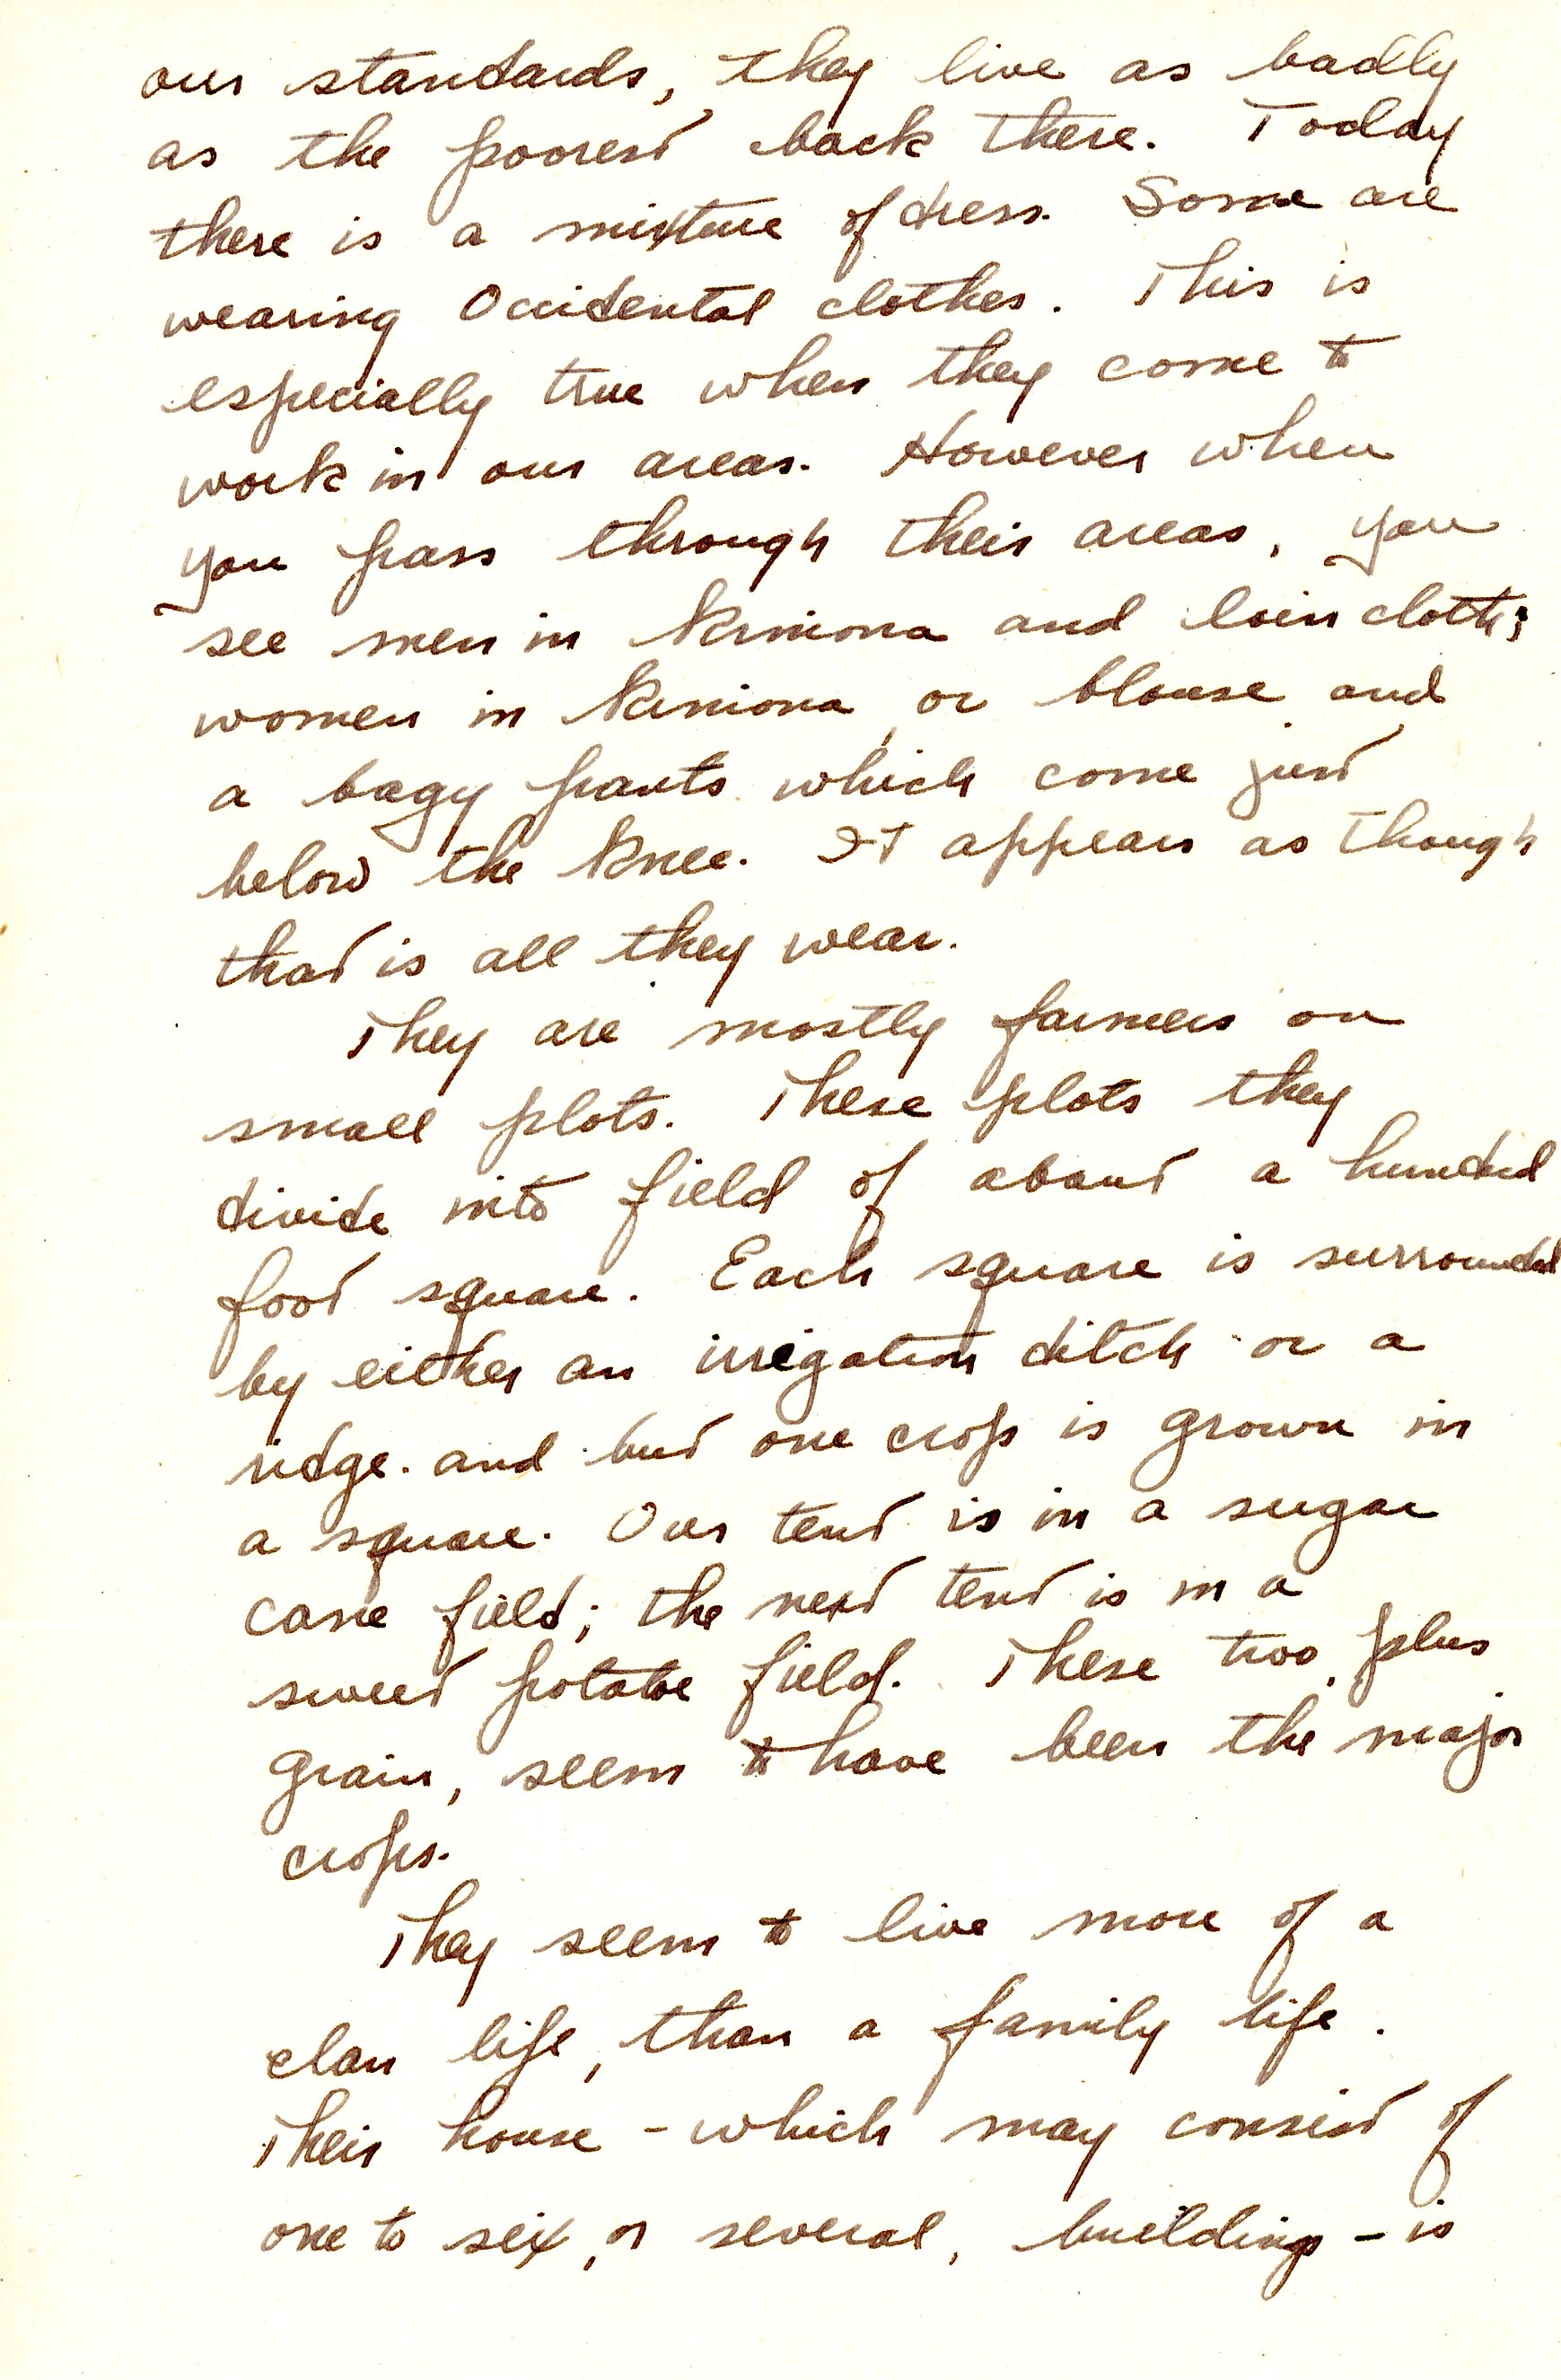 our standards, they live as badly
as the poorest back there. Today
there is a mixture of dress. Some are
wearing Occidental clothes. This is
especially true when they come to
work in our areas. However when
you pass through their areas, you
see men in kimiona and loin cloth;
women in kimiona, or blouse and
a bagy pants which come just
below the knee. It appears as though
that is all they wear.
They are mostly farmers on
small plots. These plots they
divide into field of about a hundred
foot square. Each square is surrounded
by either an irrigation ditch or a
ridge. and but one crop is grown in
a square. Our tent is in a sugar
cane field; the next tent is in a
sweet potatoe field. These two, plus
grain, seem to have been the major
crops.
They seem to live more of a
clan life, than a family life.
Their house - which may consist of
one to six, or several, buildings - is